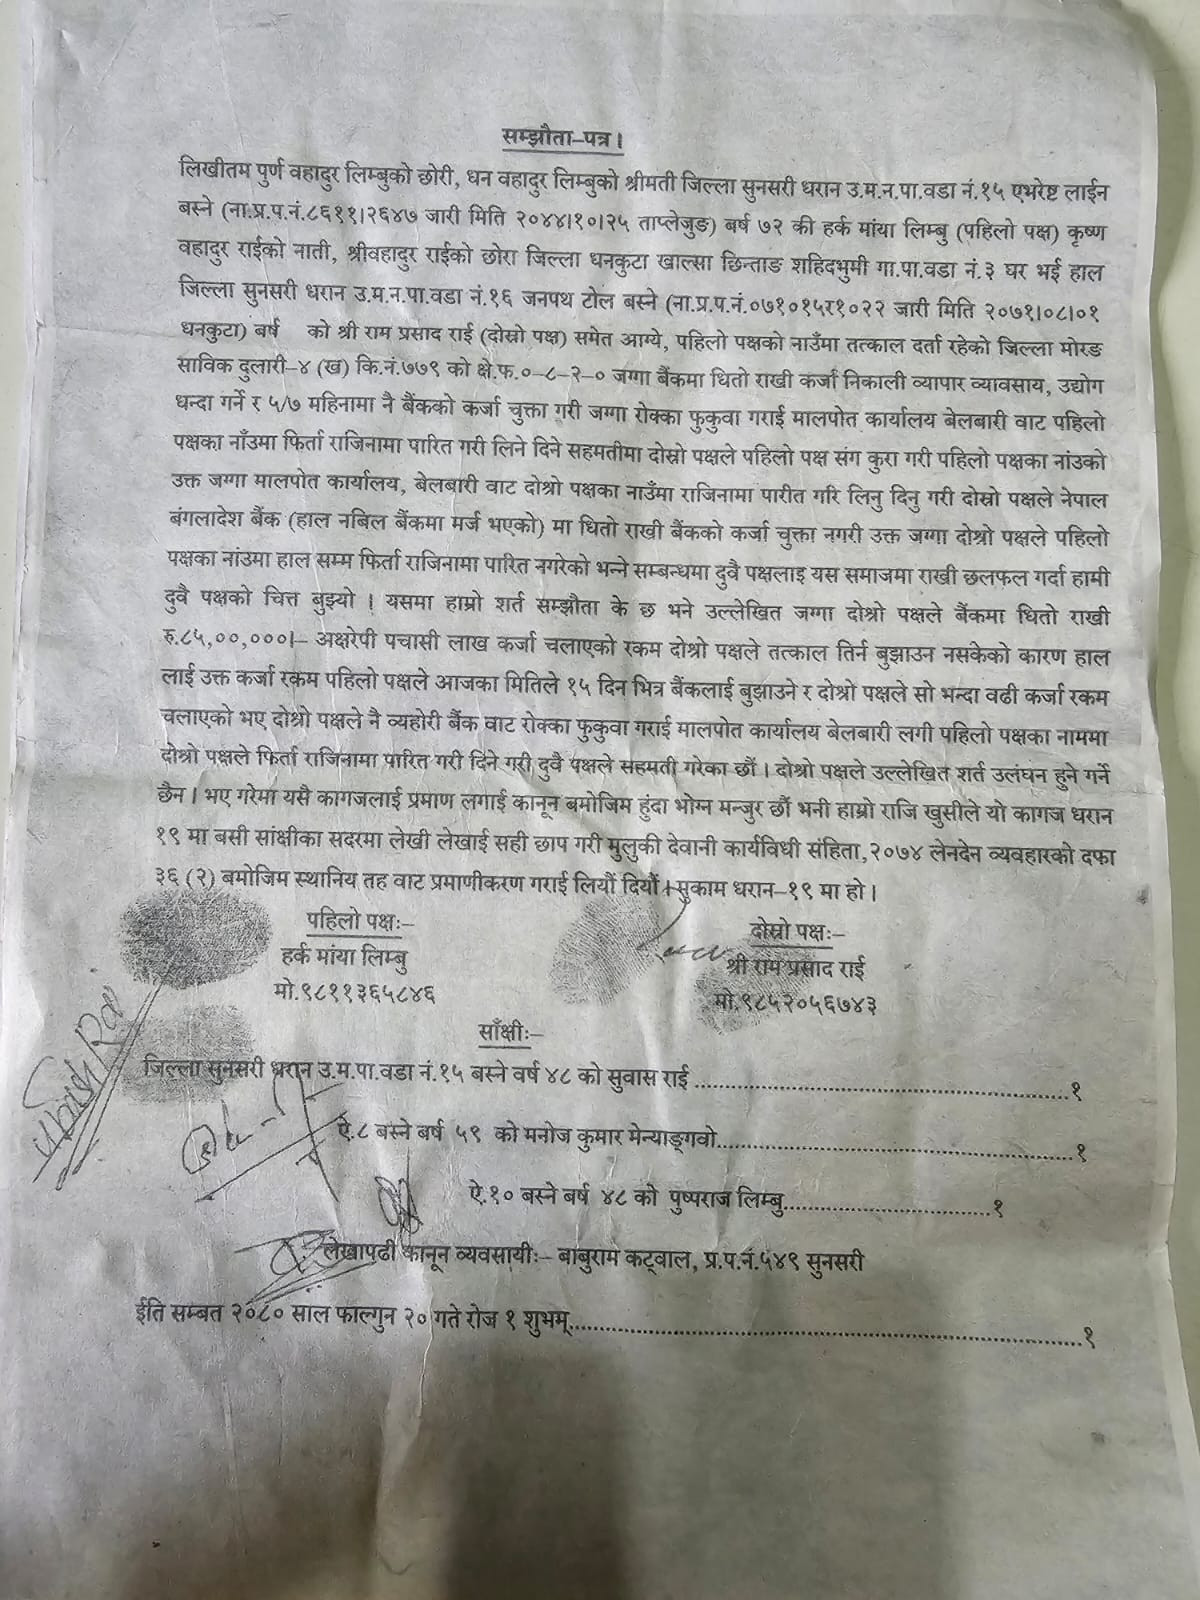 सम्झौता-पत्र।
लिखीतम पुर्ण वहादुर लिम्बुको छोरी, धन वहादुर लिम्बुको श्रीमती जिल्ला सुनसरी धरान उ.म.न.पा.वडा नं.१५ एभरेष्ट लाईन
बस्ने (ना.प्र.प.नं.८६११।२६४७ जारी मिति २०४४।१०।२५ ताप्लेजुङ) बर्ष ७२ की हर्क मांया लिम्बु (पहिलो पक्ष) कृष्ण
वहादुर राईको नाती, श्रीवहादुर राईको छोरा जिल्ला धनकुटा खाल्सा छिन्ताङ शहिदभुमी गा.पा.वडा नं.३ घर भई हाल
जिल्ला सुनसरी धरान उ.म.न.पा.वडा नं.१६ जनपथ टोल बस्ने (ना.प्र.प.नं.०७१०१५र१०२२ जारी मिति २०७१।०८।०१
धनकुटा) बर्ष को श्री राम प्रसाद राई (दोस्रो पक्ष) समेत आग्ये, पहिलो पक्षको नाउँमा तत्काल दर्ता रहेको जिल्ला मोरङ
साविक दुलारी-४ (ख) कि.नं.७७९ को क्षे.फ.०-८-२-० जग्गा बैंकमा धितो राखी कर्जा निकाली व्यापार व्यावसाय, उद्योग
धन्दा गर्ने र ५/७ महिनामा नै बैंकको कर्जा चुक्ता गरी जग्गा रोक्का फुकुवा गराई मालपोत कार्यालय बेलबारी वाट पहिलो
पक्षका नाँउमा फिर्ता राजिनामा पारित गरी लिने दिने सहमतीमा दोस्रो पक्षले पहिलो पक्ष संग कुरा गरी पहिलो पक्षका नांउको
उक्त जग्गा मालपोत कार्यालय, बेलबारी वाट दोश्रो पक्षका नाउँमा राजिनामा पारीत गरि लिनु दिनु गरी दोस्रो पक्षले नेपाल
बंगलादेश बैंक (हाल नबिल बैंकमा मर्ज भएको) मा धितो राखी बैंकको कर्जा चुक्ता नगरी उक्त जग्गा दोश्रो पक्षले पहिलो
पक्षका नांउमा हाल सम्म फिर्ता राजिनामा पारित नगरेको भन्ने सम्बन्धमा दुवै पक्षलाइ यस समाजमा राखी छलफल गर्दा हामी
दुवै पक्षको चित्त बुझ्यो । यसमा हाम्रो शर्त सम्झौता के छ भने उल्लेखित जग्गा दोश्रो पक्षले बैंकमा धितो राखी
रु.८५,००,०००।- अक्षरेपी पचासी लाख कर्जा चलाएको रकम दोश्रो पक्षले तत्काल तिर्न बुझाउन नसकेको कारण हाल
लाई उक्त कर्जा रकम पहिलो पक्षले आजका मितिले १५ दिन भित्र बैंकलाई बुझाउने र दोश्रो पक्षले सो भन्दा वढी कर्जा रकम
चलाएको भए दोश्रो पक्षले नै व्यहोरी बैंक वाट रोक्का फुकुवा गराई मालपोत कार्यालय बेलबारी लगी पहिलो पक्षका नाममा
दोश्रो पक्षले फिर्ता राजिनामा पारित गरी दिने गरी दुवै पक्षले सहमती गरेका छौं । दोश्रो पक्षले उल्लेखित शर्त उलंघन हुने गर्ने
छैन । भए गरेमा यसै कागजलाई प्रमाण लगाई कानून बमोजिम हुंदा भोग्न मन्जुर छौं भनी हाम्रो राजि खुसीले यो कागज धरान
१९ मा बसी सांक्षीका सदरमा लेखी लेखाई सही छाप गरी मुलुकी देवानी कार्यविधी संहिता,२०७४ लेनदेन व्यवहारको दफा
३६ (२) बमोजिम स्थानिय तह वाट प्रमाणीकरण गराई लियौं दियौं । मुकाम धरान-१९ मा हो ।
पहिलो पक्षः- दोस्रो पक्षः-
हर्क मांया लिम्बु श्री राम प्रसाद राई
मो.९८११३६५८४६ मो.९८५२०५६७४३
साँक्षीः-
जिल्ला सुनसरी धरान उ.म.पा.वडा नं.१५ बस्ने वर्ष ४८ को सुवास राई ........................................१
ऐ.८ बस्ने बर्ष ५९ को मनोज कुमार मेन्याङ्गवो........................................१
ऐ.१० बस्ने बर्ष ४८ को पुष्पराज लिम्बु........................१
लेखापढी कानून व्यवसायीः- बाबुराम कट्वाल, प्र.प.नं.५४९ सुनसरी
ईति सम्बत २०८० साल फाल्गुन २० गते रोज १ शुभम्........................................................१